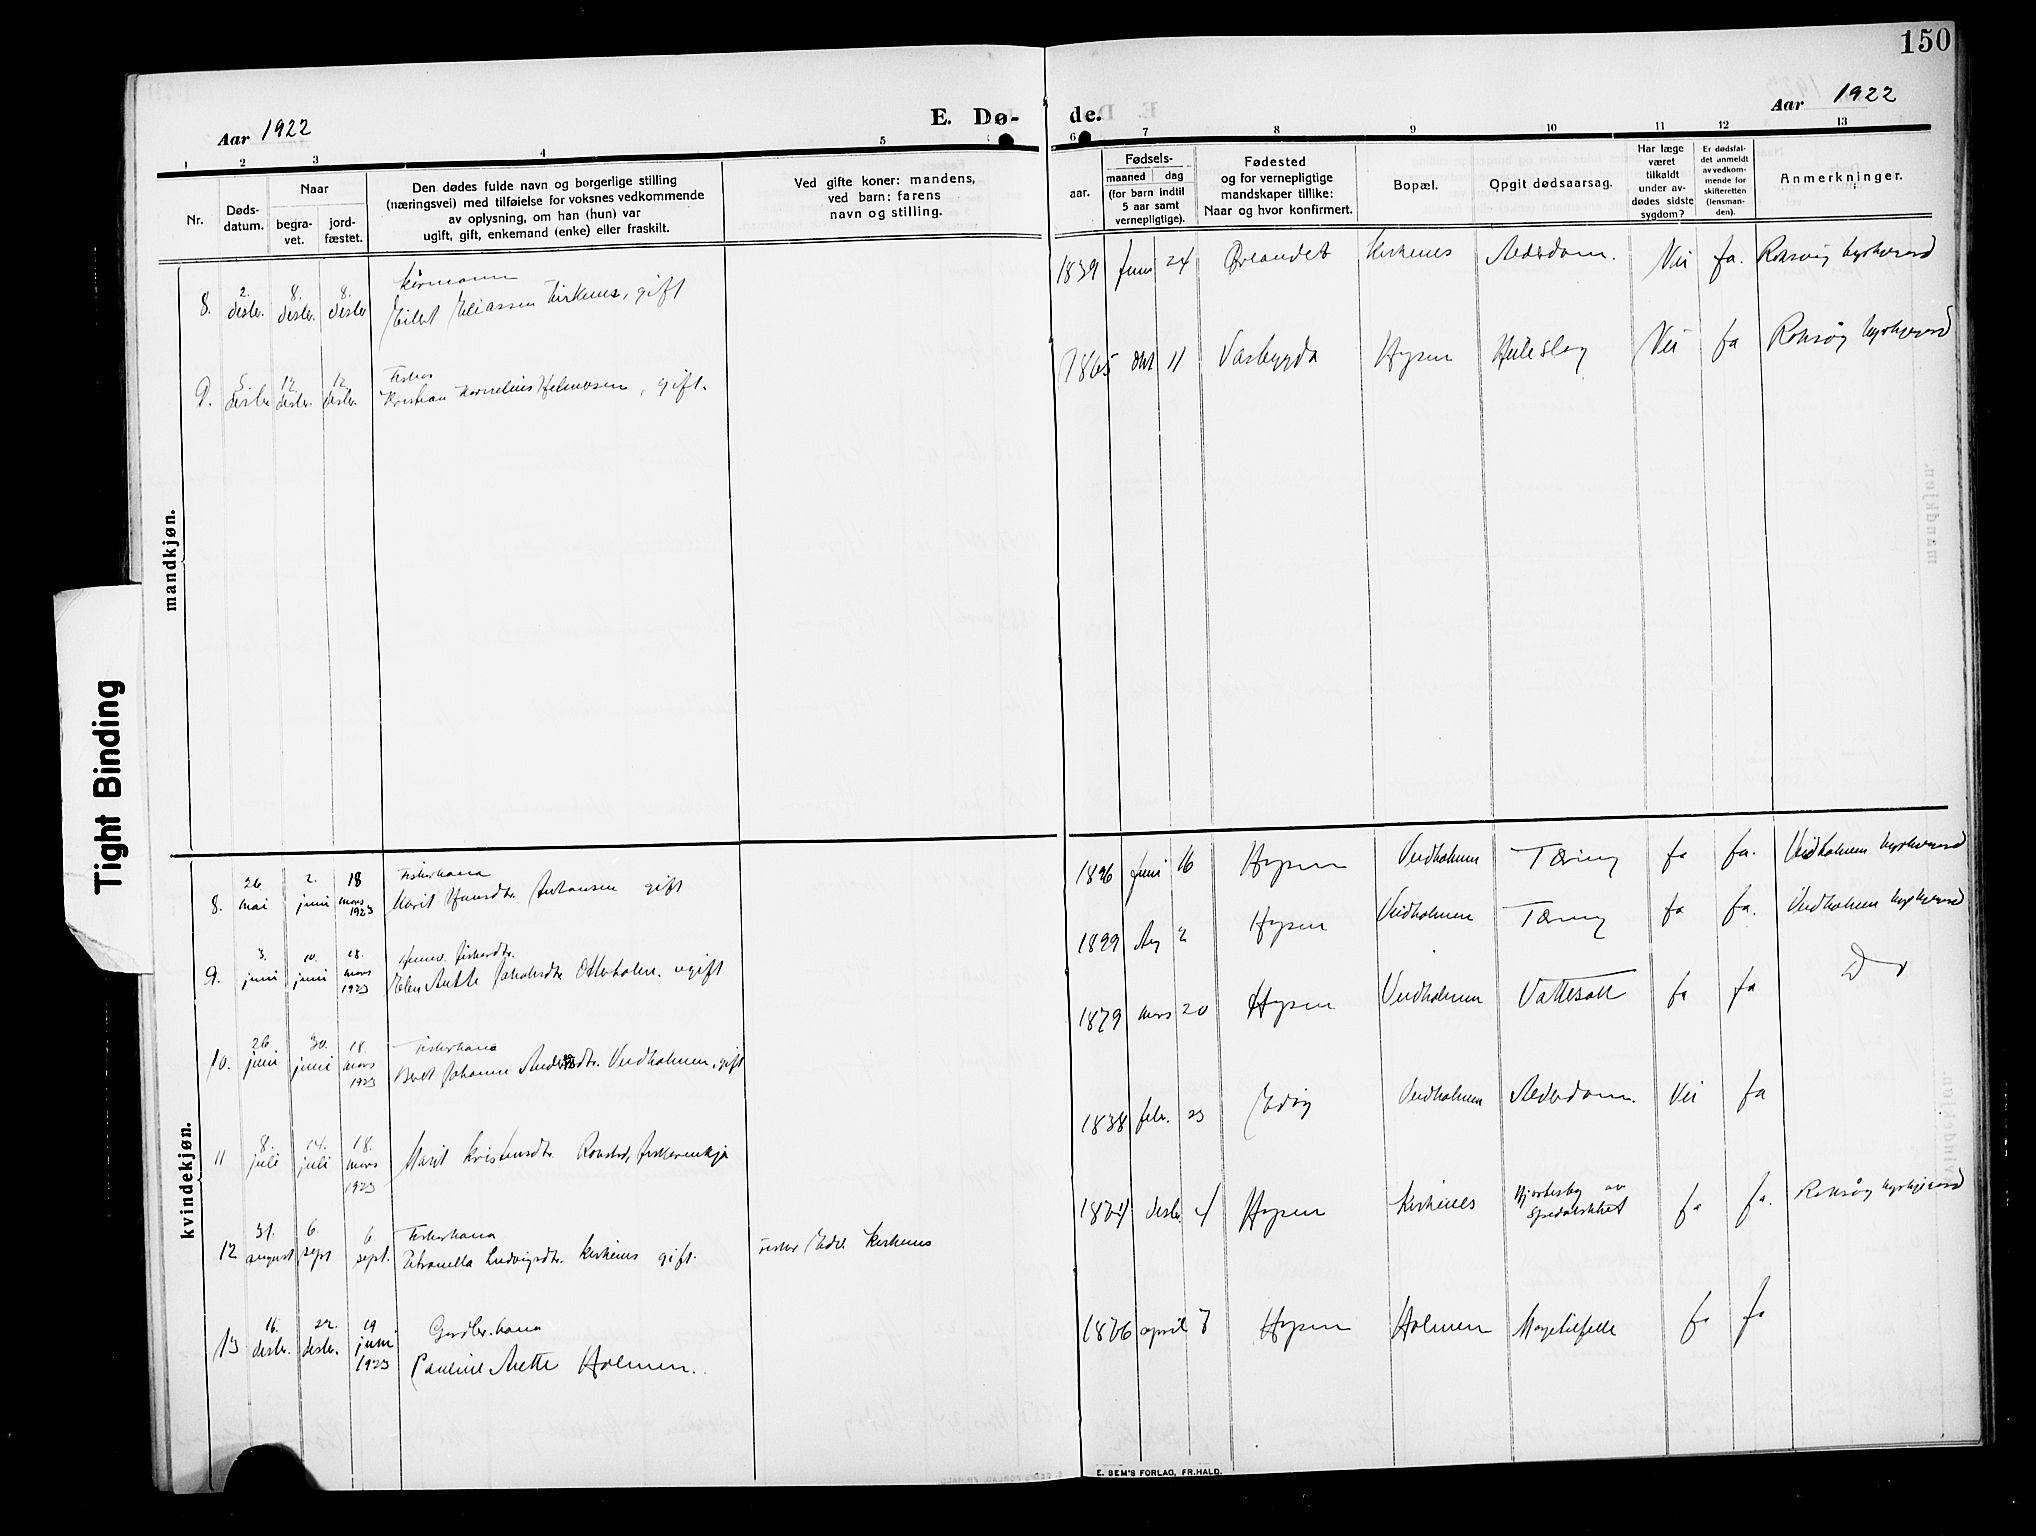 150
Aar 1922
E. Dø-
de.
Aar 1922
1 2 3 4 5 6 7 8 9 10 11 12 13
Nr.
Døds-
datum.
Naar
begra-
vet.
jord-
fæstet.
Den dødes fulde navn og borgerlige stilling
(næringsvei) med tilføielse for voksnes vedkommende
av oplysning, om han (hun) var
ugift, gift, enkemand (enke) eller fraskilt.
Ved gifte koner: mandens,
ved barn: farens
navn og stilling.
Fødsels-
aar.
maaned dag
(for barn indtil
5 aar samt
vernepligtige).
Fødested
og for vernepligtige
mandskaper tillike:
Naar og hvor konfirmert.
Bopæl.
Opgit dødsaarsag.
Har læge
været
tilkaldt
under av-
dødes sidste
sygdom?
Er dødsfal-
det anmeldt
av vedkom-
mende for
skifteretten
(lensman-
den).
Anmerkninger.
mandkjøn.
8. 2. desbr. 8. desbr. 8. desbr
Kårmann
Eilert Eliassen Kirknes, gift
1839 Juni 24 Ørlandet Kirkenes Alderdom. Nei ja. Roksøy kyrkjegard
9. 5. desbr 12 desbr. 12. desbr.
Fisker
Kristian Kornelius Helmersen, gift.
1865 Okt 11 Vasbygda Hopen Nei ja Roksøy kyrkjegard
kvindekjøn.
8. 26 mai 2. juni 18 mars 1923
Fiskerkona
Marit Hansdtr. Antonsen gift
1896 juni 16 Hopen Veidholmen Tæring ja ja. Veidholmen kyrkjegard
9. 3. juni 10. juni 18. mars 1923
Elen Anette Jakobsdtr Otterholm. ugift
1899 Aug 2 Hopen Veidholmen Tæring ja ja. Veidholmen kyrkjegard
10. 26 juni 30. juni 18. mars 1923
Fiskerkona
Beret Johanna Andersdtr. Veidholmen, gift
1879 mars 20 Hopen Veidholmen Vattersott ja ja Do
11 8. juli 14. juli 18. mars 1923
Marit Kristensdtr. fiskerenkja
1838 febr. 23 Edøy Veidholmen Alderdom. Nei ja
12 31. august 6. sept 6 sept.
Fiskerkona
Petronella Ludvigsdtr. Kirkenes gift.
Fisker Edel Kirkenes
1874 desbr. 4 Hopen Kirkenes ja ja. Roksøy kyrkjegard
13 16. desbr. 22. desbr. 19 juni 1923
Gardbr.kona
Pauline Anette Holmen.
1876 april 7 Hopen Holmen ja ja
Tight Binding
E. SEM'S FORLAG, FR.HALD.